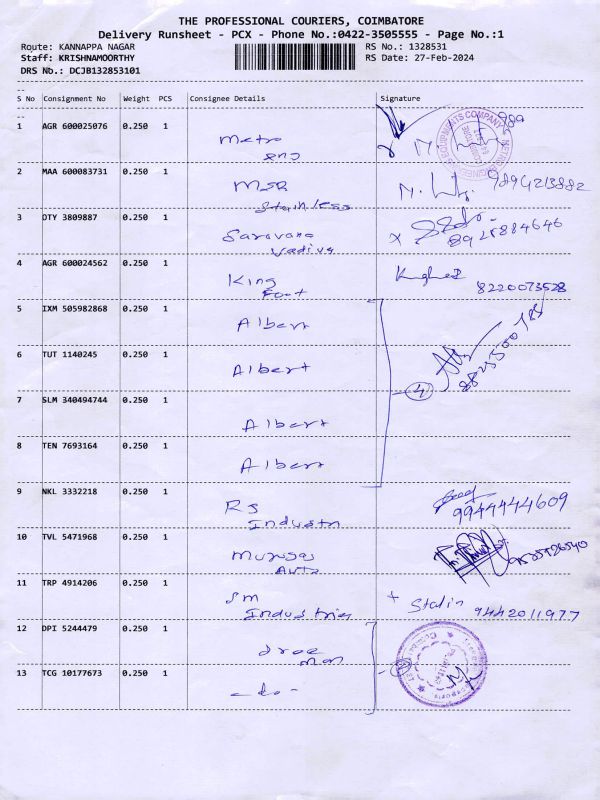 THE PROFESSIONAL COURIERS, COIMBATORE
Delivery Runsheet - PCX - Phone No.:0422-3505555 - Page No.:1
Route: KANNAPPA NAGAR
RS No.: 1328531
Staff: KRISHNAMOORTHY
RS Date: 27-Feb-2024
DRS Nb.: DCJB132853101
S No Consignment No Weight PCS Consignee Details Signature
1 AGR 600025076 0.250 1 Metro
989
2 MAA 600083731 0.250 1 MSR 9894213882
Stainless
3 DTY 3809887 0.250 1 Saravana
Vadivu 8925884646
4 AGR 600024562 0.250 1 King
Foot 8220073528
5 IXM 505982868 0.250 1 Albert
6 TUT 1140245 0.250 1 Albert
7 SLM 340494744 0.250 1 Albert
4
8 TEN 7693164 0.250 1 Albert
9 NKL 3332218 0.250 1 RS 9944444609
Industri
10 TVL 5471968 0.250 1 Murugas
Auto
11 TRP 4914206 0.250 1 SM Stalin
Industries 9442011977
12 DPI 5244479 0.250 1 
13 TCG 10177673 0.250 1 - do -